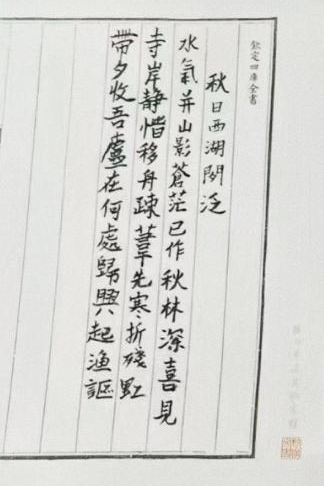 欽定四庫全書
秋日西湖閒泛
水氣并山影蒼茫已作秋林深喜見
寺岸静惜移舟疎葦先寒折殘虹
帶夕收吾廬在何處歸興起漁謳